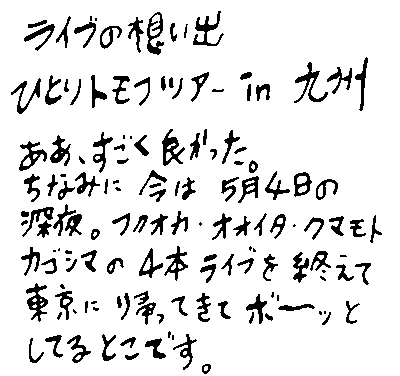 ライブの想い出
ひとりトモフツアー in 九州
ああ、すごく良かった。
ちなみに 今は 5月4日の
深夜。フクオカ・オオイタ・クマモト
カゴシマの 4本ライブを 終えて
東京に 帰ってきて ボーッと
してるとこです。